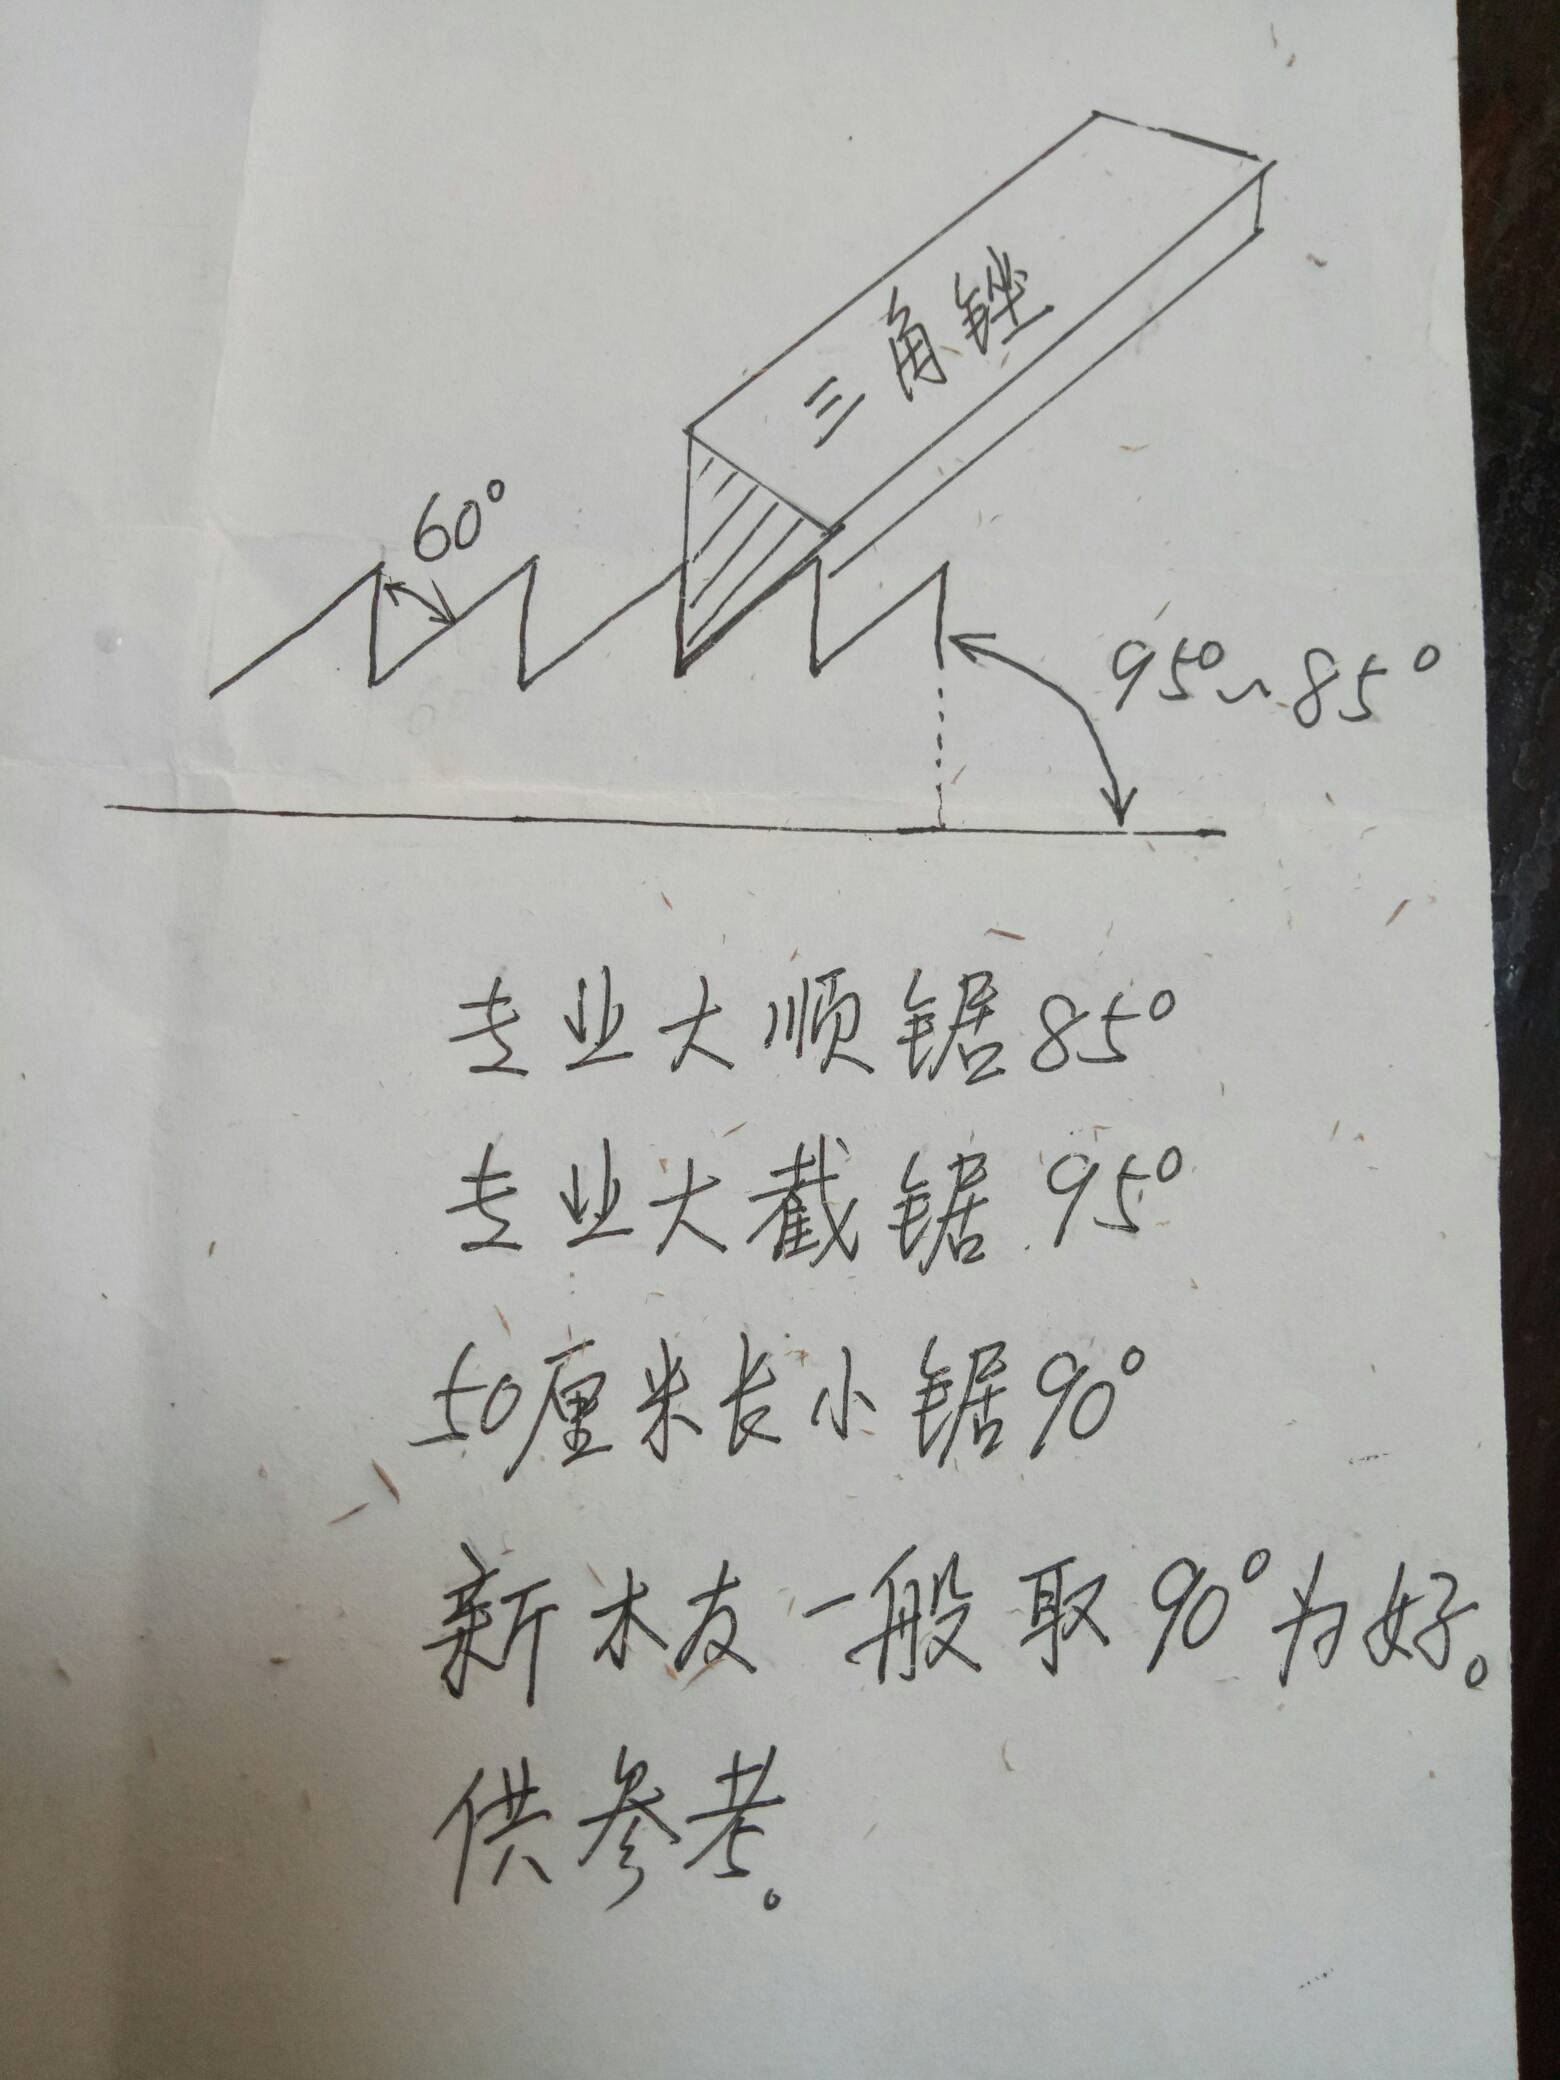 三角锉
60°
95°~85°
专业大顺锯85°
专业大截锯95°
50厘米长小锯90°
新木友一般取90°为好。
供参考。